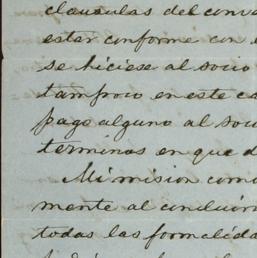 clausulas del conv
ester conforme con
se hiciese al socio
tampoco en este ca
pago alguno al soc
terminos en que d
Mi mision com
mente al
todas las formalida